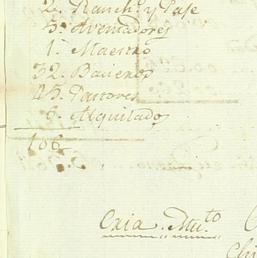 2. Ranch.s y Pase
5. Aventadores
1. Maestro
32. Baneros
45. Pastores
6. Alquilados
106.
Caia. Mu.to